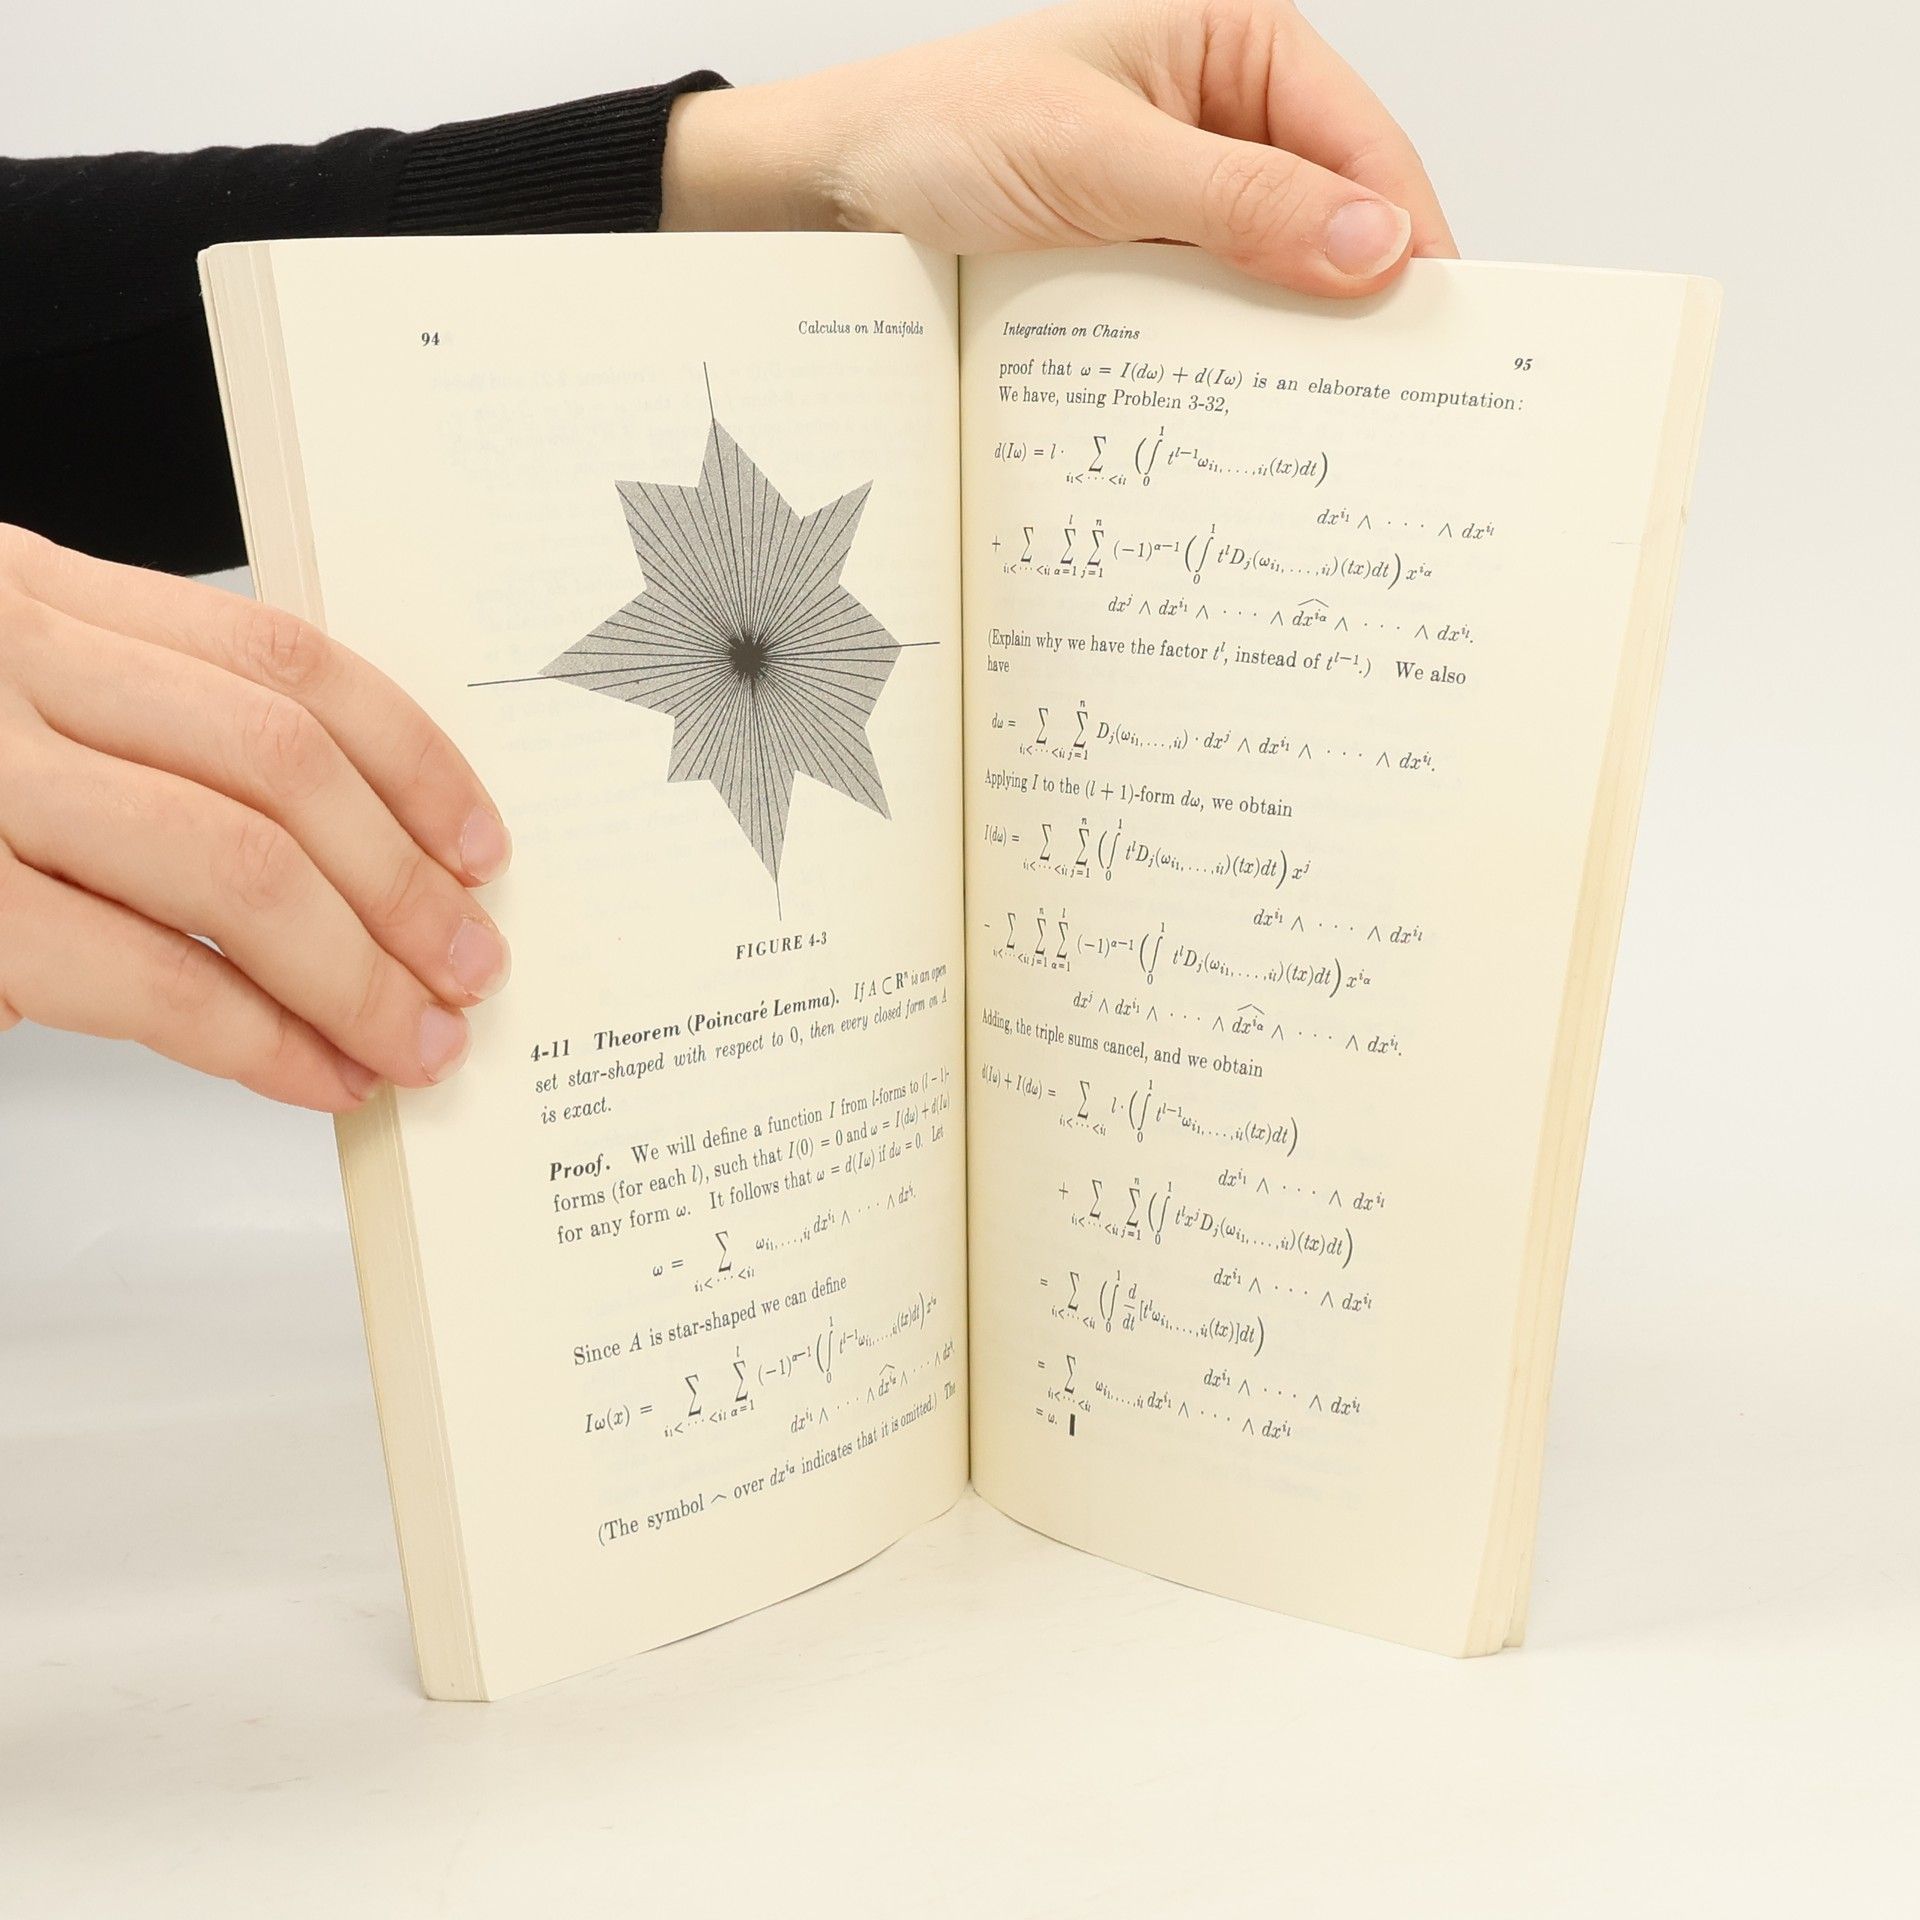 94
Calculus on Manifolds
FIGURE 4-3
4-11 Theorem (Poincaré Lemma). If A ⊂ Rⁿ is an open
set star-shaped with respect to 0, then every closed form on A
is exact.
Proof. We will define a function I from l-forms to (l − 1)-
forms (for each l), such that I(0) = 0 and ω = I(dω) + d(Iω)
for any form ω. It follows that ω = d(Iω) if dω = 0. Let
ω = ∑_{i₁< ··· <i_l} ω_{i₁, ...,i_l} dx^{i₁} ∧ · · · ∧ dx^{i_l}.
Since A is star-shaped we can define
Iω(x) = ∑_{i₁< ··· <i_l} ∑_{α=1}^{l} (−1)^{α−1} (∫_0^1 t^{l−1}ω_{i₁, ...,i_l}(tx)dt) x^{i_α}
dx^{i₁} ∧ · · · ∧ \widehat{dx^{i_α}} ∧ · · · ∧ dx^{i_l}.
(The symbol ⌢ over dx^{i_α} indicates that it is omitted.) The
Integration on Chains
95
proof that ω = I(dω) + d(Iω) is an elaborate computation:
We have, using Problem 3-32,
d(Iω) = l · ∑_{i₁< ··· <i_l} (∫_0^1 t^{l−1}ω_{i₁, ...,i_l}(tx)dt)
dx^{i₁} ∧ · · · ∧ dx^{i_l}
+ ∑_{i₁< ··· <i_l} ∑_{α=1}^{l} ∑_{j=1}^{n} (−1)^{α−1} (∫_0^1 t^l D_j(ω_{i₁, ...,i_l})(tx)dt) x^{i_α}
dx^j ∧ dx^{i₁} ∧ · · · ∧ \widehat{dx^{i_α}} ∧ · · · ∧ dx^{i_l}.
(Explain why we have the factor t^l, instead of t^{l−1}.) We also
have
dω = ∑_{i₁< ··· <i_l} ∑_{j=1}^{n} D_j(ω_{i₁, ...,i_l}) · dx^j ∧ dx^{i₁} ∧ · · · ∧ dx^{i_l}.
Applying I to the (l + 1)-form dω, we obtain
I(dω) = ∑_{i₁< ··· <i_l} ∑_{j=1}^{n} (∫_0^1 t^l D_j(ω_{i₁, ...,i_l})(tx)dt) x^j
dx^{i₁} ∧ · · · ∧ dx^{i_l}
− ∑_{i₁< ··· <i_l} ∑_{j=1}^{n} ∑_{α=1}^{l} (−1)^{α−1} (∫_0^1 t^l D_j(ω_{i₁, ...,i_l})(tx)dt) x^{i_α}
dx^j ∧ dx^{i₁} ∧ · · · ∧ \widehat{dx^{i_α}} ∧ · · · ∧ dx^{i_l}.
Adding, the triple sums cancel, and we obtain
d(Iω) + I(dω) = ∑_{i₁< ··· <i_l} l · (∫_0^1 t^{l−1}ω_{i₁, ...,i_l}(tx)dt)
dx^{i₁} ∧ · · · ∧ dx^{i_l}
+ ∑_{i₁< ··· <i_l} ∑_{j=1}^{n} (∫_0^1 t^l x^j D_j(ω_{i₁, ...,i_l})(tx)dt)
dx^{i₁} ∧ · · · ∧ dx^{i_l}
= ∑_{i₁< ··· <i_l} (∫_0^1 d/dt [t^l ω_{i₁, ...,i_l}(tx)]dt)
dx^{i₁} ∧ · · · ∧ dx^{i_l}
= ∑_{i₁< ··· <i_l} ω_{i₁, ...,i_l} dx^{i₁} ∧ · · · ∧ dx^{i_l}
= ω. ▮